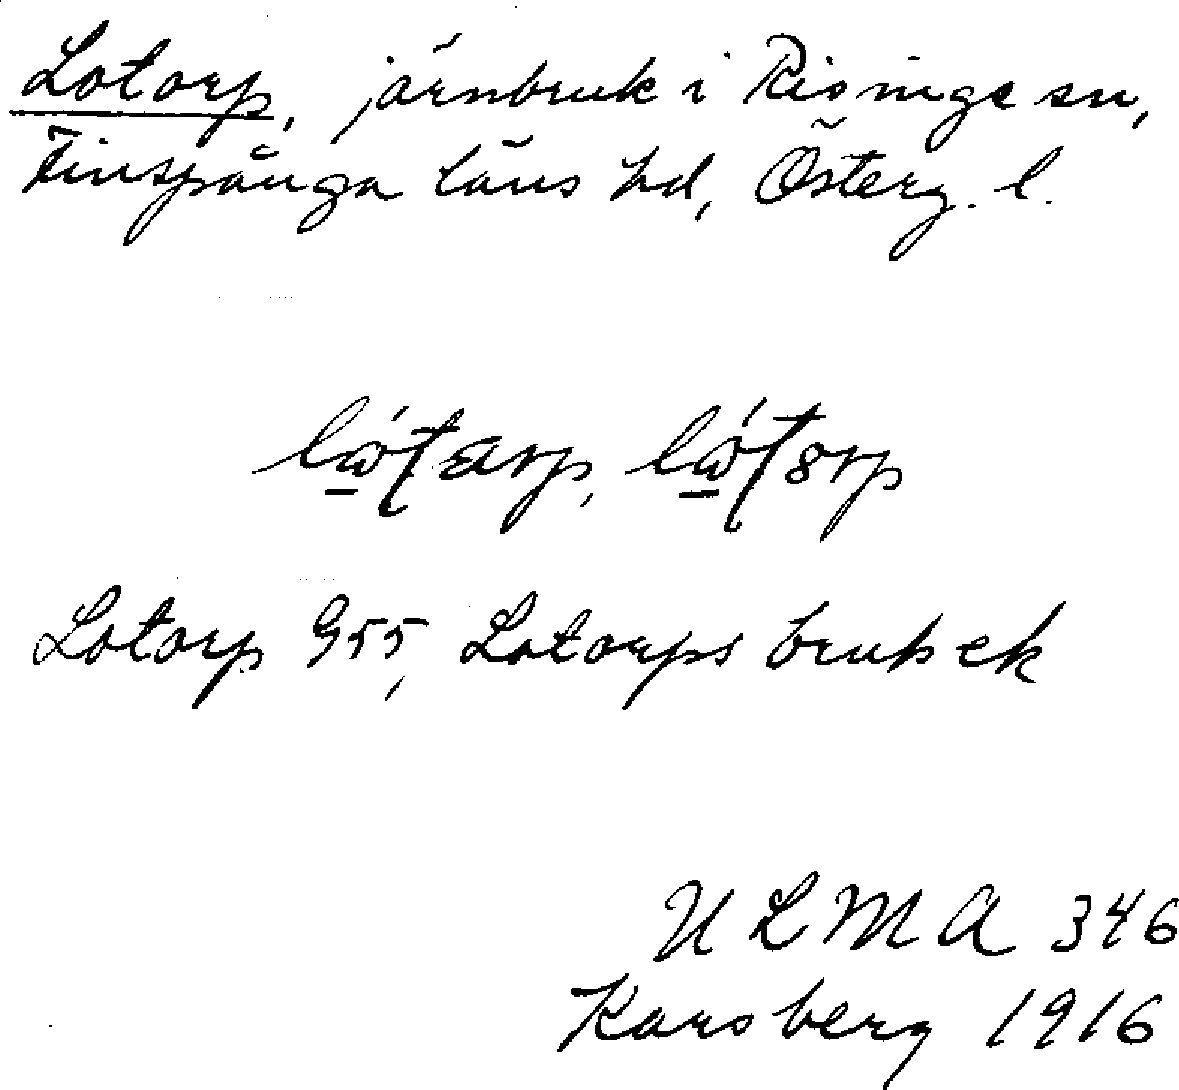 Lotorp, järnbruk i Risinge sn,
Finspånga läns hd, Österg. l.
Lotorp G55, Lotorps bruk ek
ULMA 346
Karsberg 1916